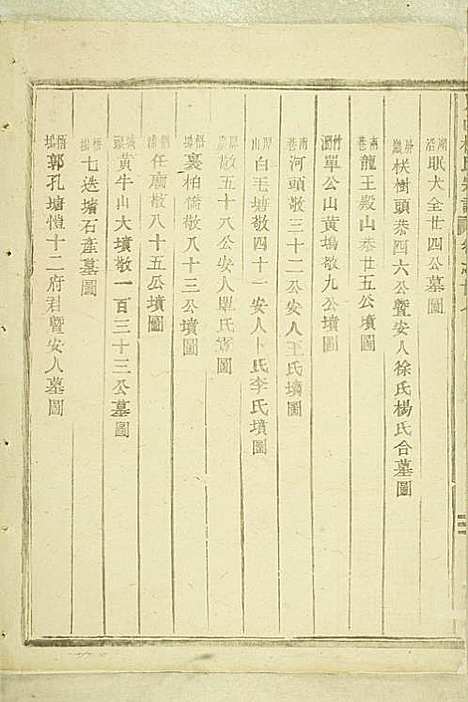 眠大全廿四公墓圖
栱樹頭恭四六公暨安人徐氏楊氏合墓圖
南巷龍王殿山恭廿五公墳圖
單公山黃塢敬九公墳圖
南巷河頭敬三十二公安人王氏墳圖
白毛塘敬四十一安人卜氏李氏墳圖
敬五十八公安人單氏墳圖
裏柏橋敬八十三公墳圖
任廟敬八十五公墳圖
黃牛山大墳敬一百三十三公墓圖
七迭塘石產墓圖
郭孔塘愷十二府君暨安人墓圖